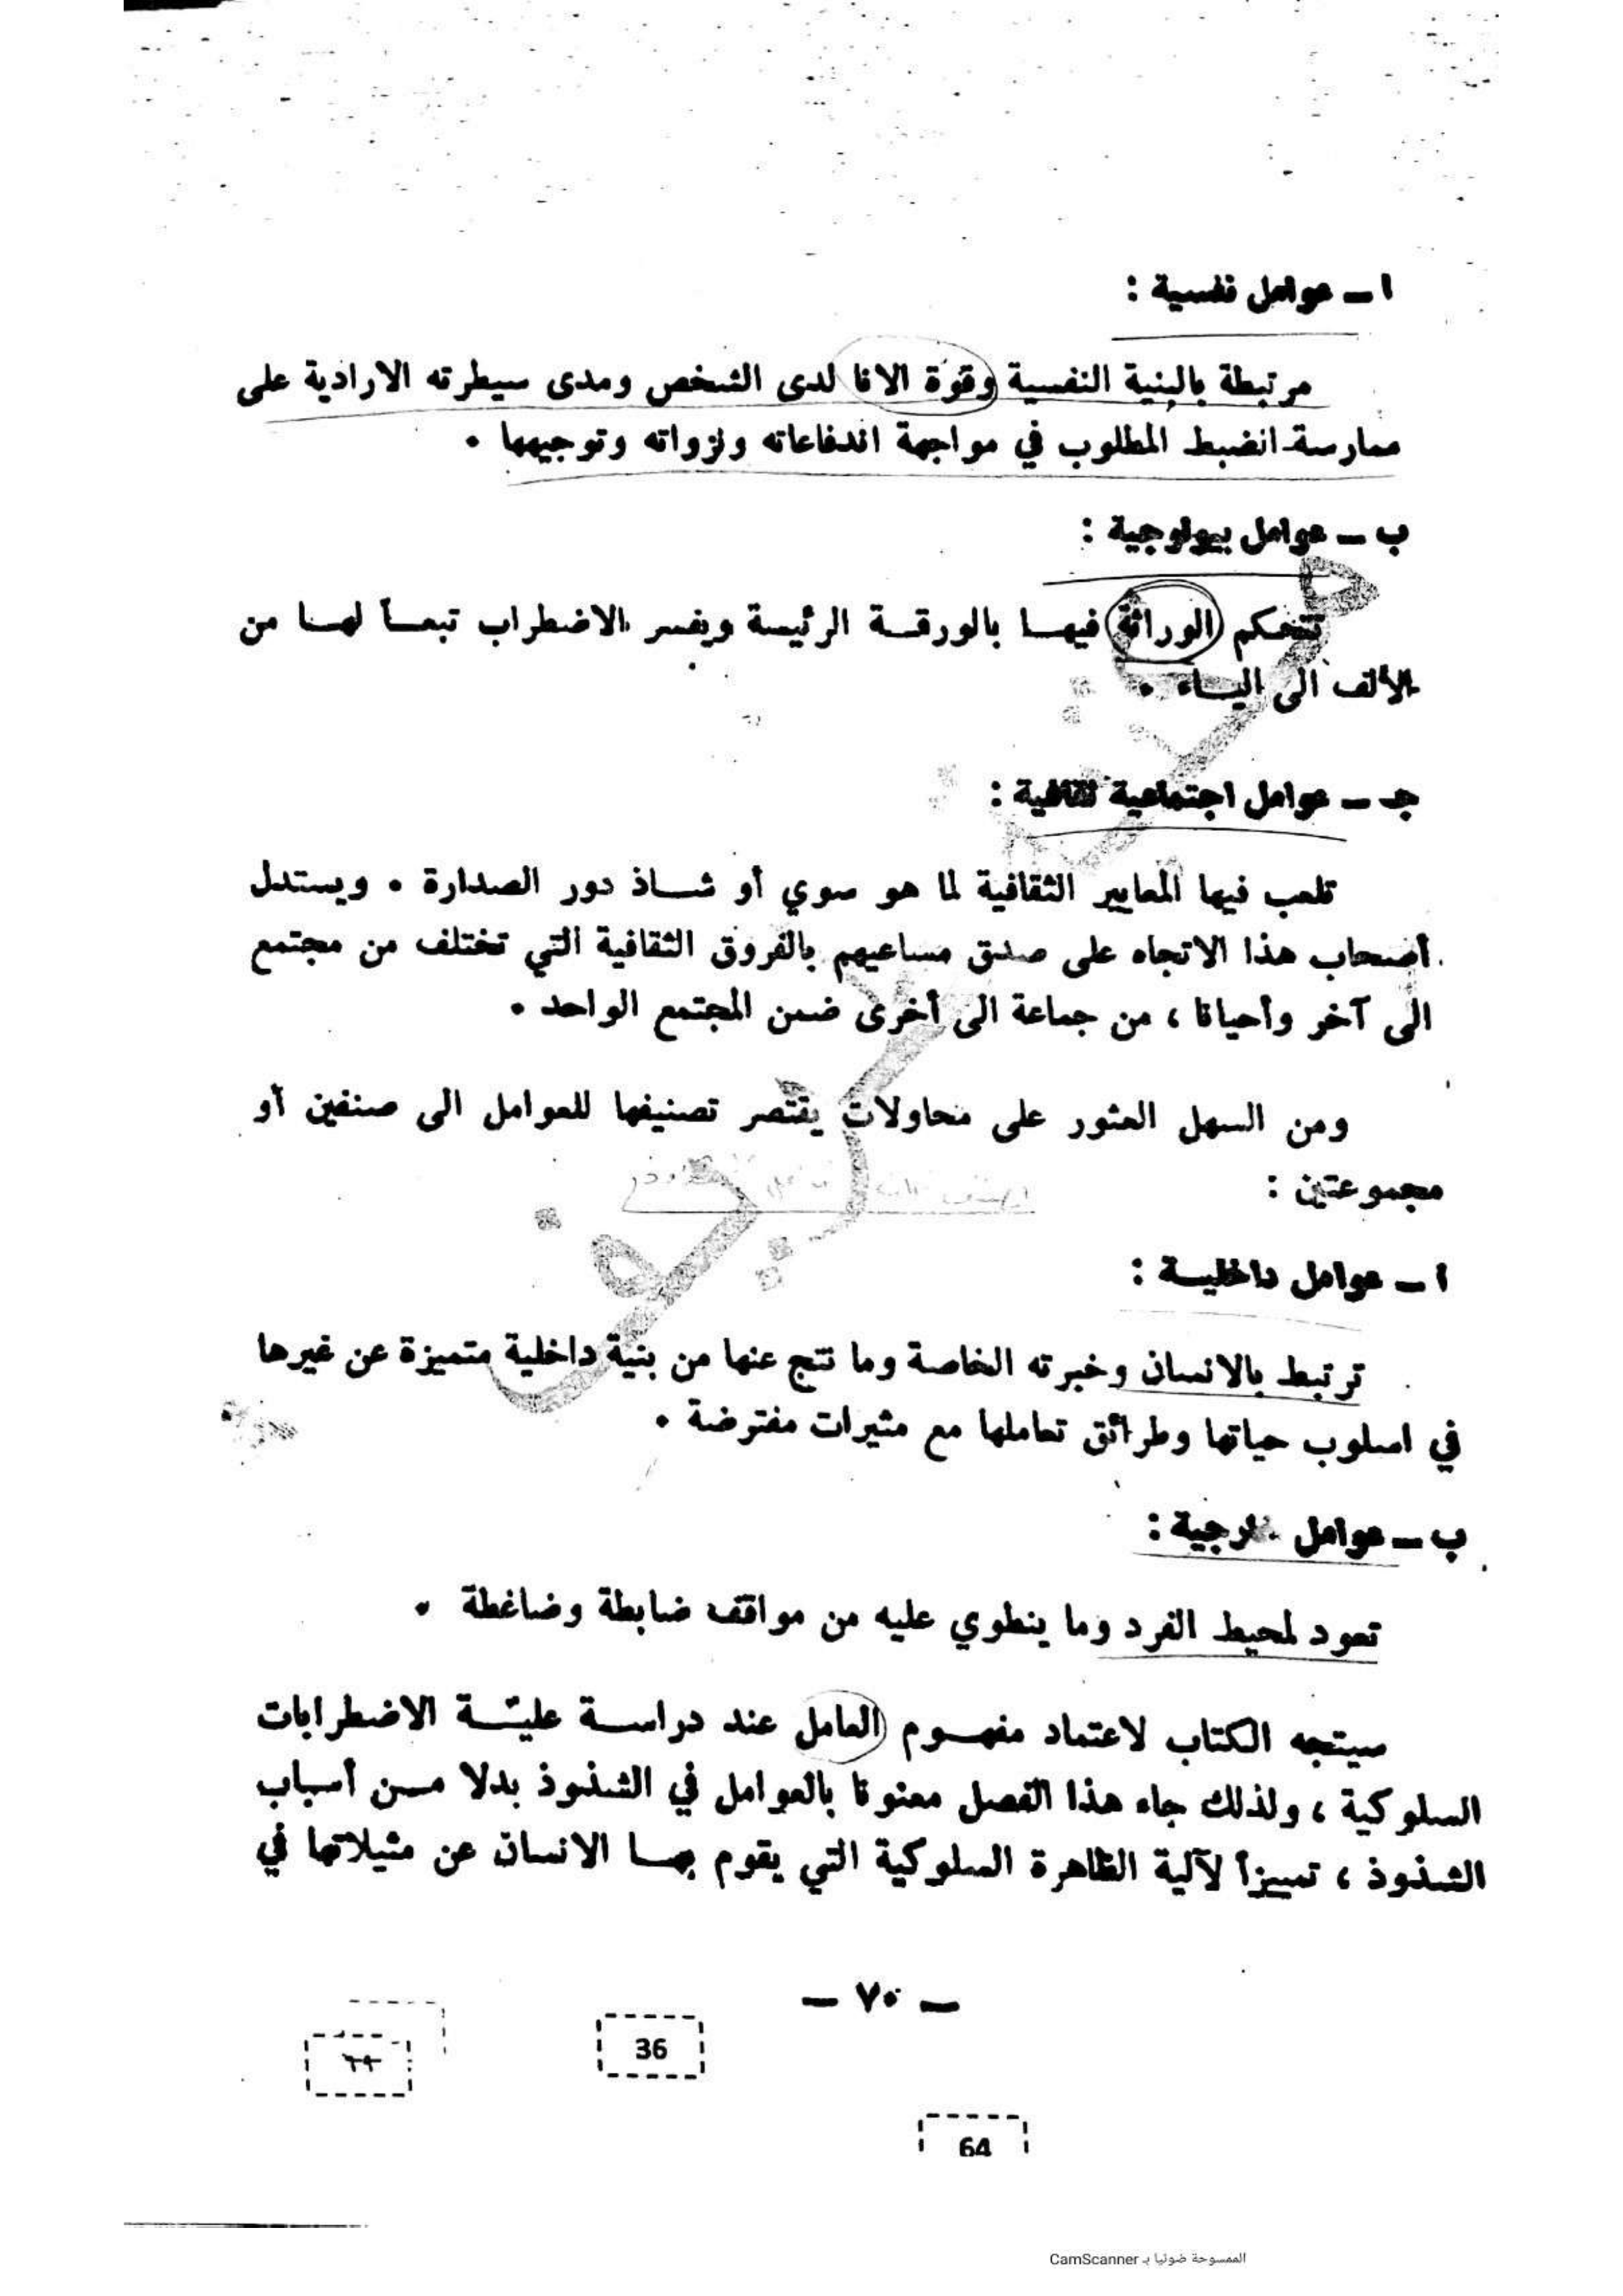 ا ــ عوامل نفسية :
مرتبطة بالبنية النفسية وقوة الانا لدى الشخص ومدى سيطرته الارادية على
ممارسة انضبط المطلوب في مواجهة اندفاعاته ونزواته وتوجيهها .
ب ــ عوامل بيولوجية :
تتحكم الوراثة فيها بالورقة الرئيسة ويفسر الاضطراب تبعاً لها من
الألف الى الياء .
جـ ــ عوامل اجتماعية ثقافية :
تلعب فيها المعايير الثقافية لما هو سوي أو شاذ دور الصدارة . ويستدل
أصحاب هذا الاتجاه على صدق مساعيهم بالفروق الثقافية التي تختلف من مجتمع
الى آخر وأحيانا ، من جماعة الى أخرى ضمن المجتمع الواحد .
ومن السهل العثور على محاولات يقتصر تصنيفها للعوامل الى صنفين أو
مجموعتين :
ا ــ عوامل داخلية :
ترتبط بالانسان وخبرته الخاصة وما نتج عنها من بنية داخلية متميزة عن غيرها
في اسلوب حياتها وطرائق تعاملها مع مثيرات مفترضة .
ب ــ عوامل خارجية :
تعود لمحيط الفرد وما ينطوي عليه من مواقف ضابطة وضاغطة .
سيتجه الكتاب لاعتماد مفهوم العامل عند دراسة عليّة الاضطرابات
السلوكية ، ولذلك جاء هذا الفصل معنونا بالعوامل في الشذوذ بدلا من أسباب
الشذوذ ، تمييزاً لآلية الظاهرة السلوكية التي يقوم بها الانسان عن مثيلاتها في
ــ ٧٠ ــ
36
64
الممسوحة ضوئيا بـ CamScanner